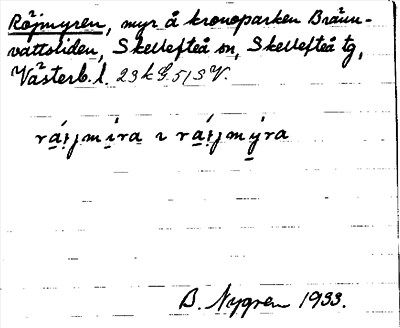 Röjmyren, myr å kronoparken Bränn-
vattsliden, Skellefteå sn, Skellefteå tg,
Västerb. l. 23 k G. 5/S V.
B. Nygren 1933.